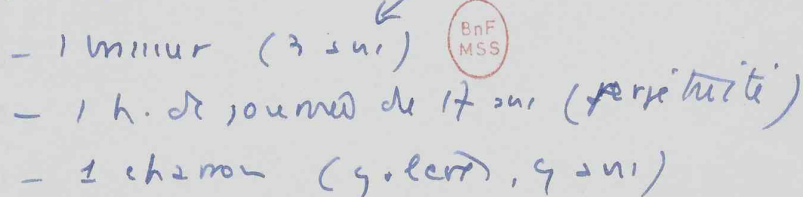 - 1 mineur (3 ans)
BnF
MSS
- 1 h. de journée de 17 ans (perpétuité)
- 1 charron (galères, 9 ans)